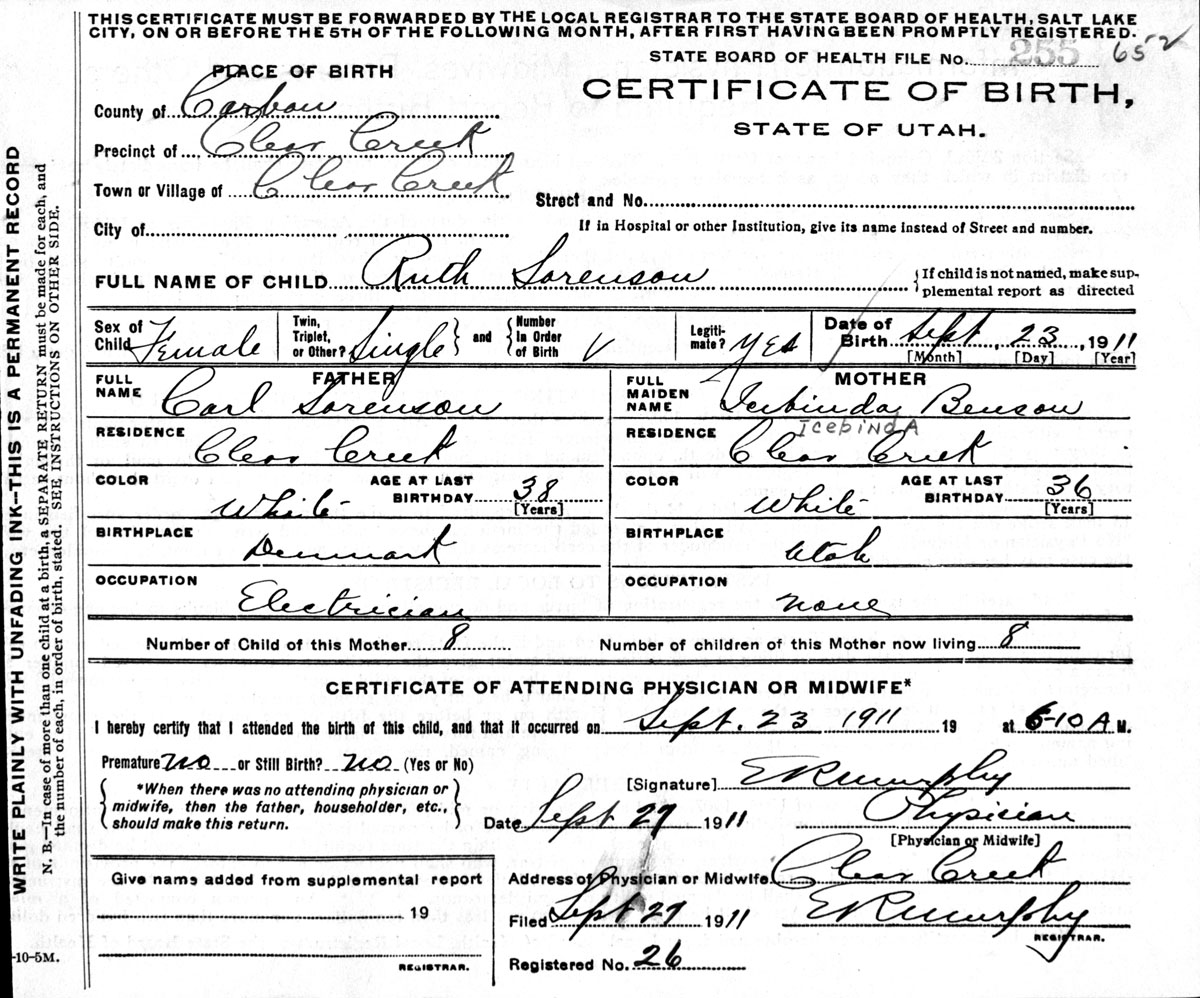 THIS CERTIFICATE MUST BE FORWARDED BY THE LOCAL REGISTRAR TO THE STATE BOARD OF HEALTH, SALT LAKE
CITY, ON OR BEFORE THE 5TH OF THE FOLLOWING MONTH, AFTER FIRST HAVING BEEN PROMPTLY REGISTERED.
STATE BOARD OF HEALTH FILE No. 255 652
PLACE OF BIRTH
CERTIFICATE OF BIRTH,
County of Carbon
STATE OF UTAH.
Precinct of Clear Creek
Town or Village of Clear Creek
Street and No.
City of
If in Hospital or other Institution, give its name instead of Street and number.
FULL NAME OF CHILD Ruth Sorenson
{If child is not named, make sup-
plemental report as directed
Sex of Child Female
Twin, Triplet, or Other? Single } and { Number In Order of Birth
Legiti-mate? Yes
Date of Birth Sept 23, 1911
[Month] [Day] [Year]
FATHER
FULL NAME Carl Sorenson
RESIDENCE Clear Creek
COLOR White
AGE AT LAST BIRTHDAY 38
[Years]
BIRTHPLACE Denmark
OCCUPATION Electrician
MOTHER
FULL MAIDEN NAME Benson
IcebindA
RESIDENCE Clear Creek
COLOR White
AGE AT LAST BIRTHDAY 36
[Years]
BIRTHPLACE Utah
OCCUPATION none
Number of Child of this Mother 8
Number of children of this Mother now living 8
CERTIFICATE OF ATTENDING PHYSICIAN OR MIDWIFE*
I hereby certify that I attended the birth of this child, and that it occurred on Sept. 23 1911 19 at 6-10 A M.
Premature no or Still Birth? no (Yes or No)
[Signature] ER Murphy
{ *When there was no attending physician or
midwife, then the father, householder, etc.,
should make this return. }
Date Sept 27 1911
Physician
[Physician or Midwife]
Give name added from supplemental report
19
REGISTRAR.
Address of Physician or Midwife Clear Creek
Filed Sept 27 1911
ER Murphy
REGISTRAR.
Registered No. 26
WRITE PLAINLY WITH UNFADING INK—THIS IS A PERMANENT RECORD
N. B.—In case of more than one child at a birth, a SEPARATE RETURN must be made for each, and
the number of each, in order of birth, stated. SEE INSTRUCTIONS ON OTHER SIDE.
-10-5M.